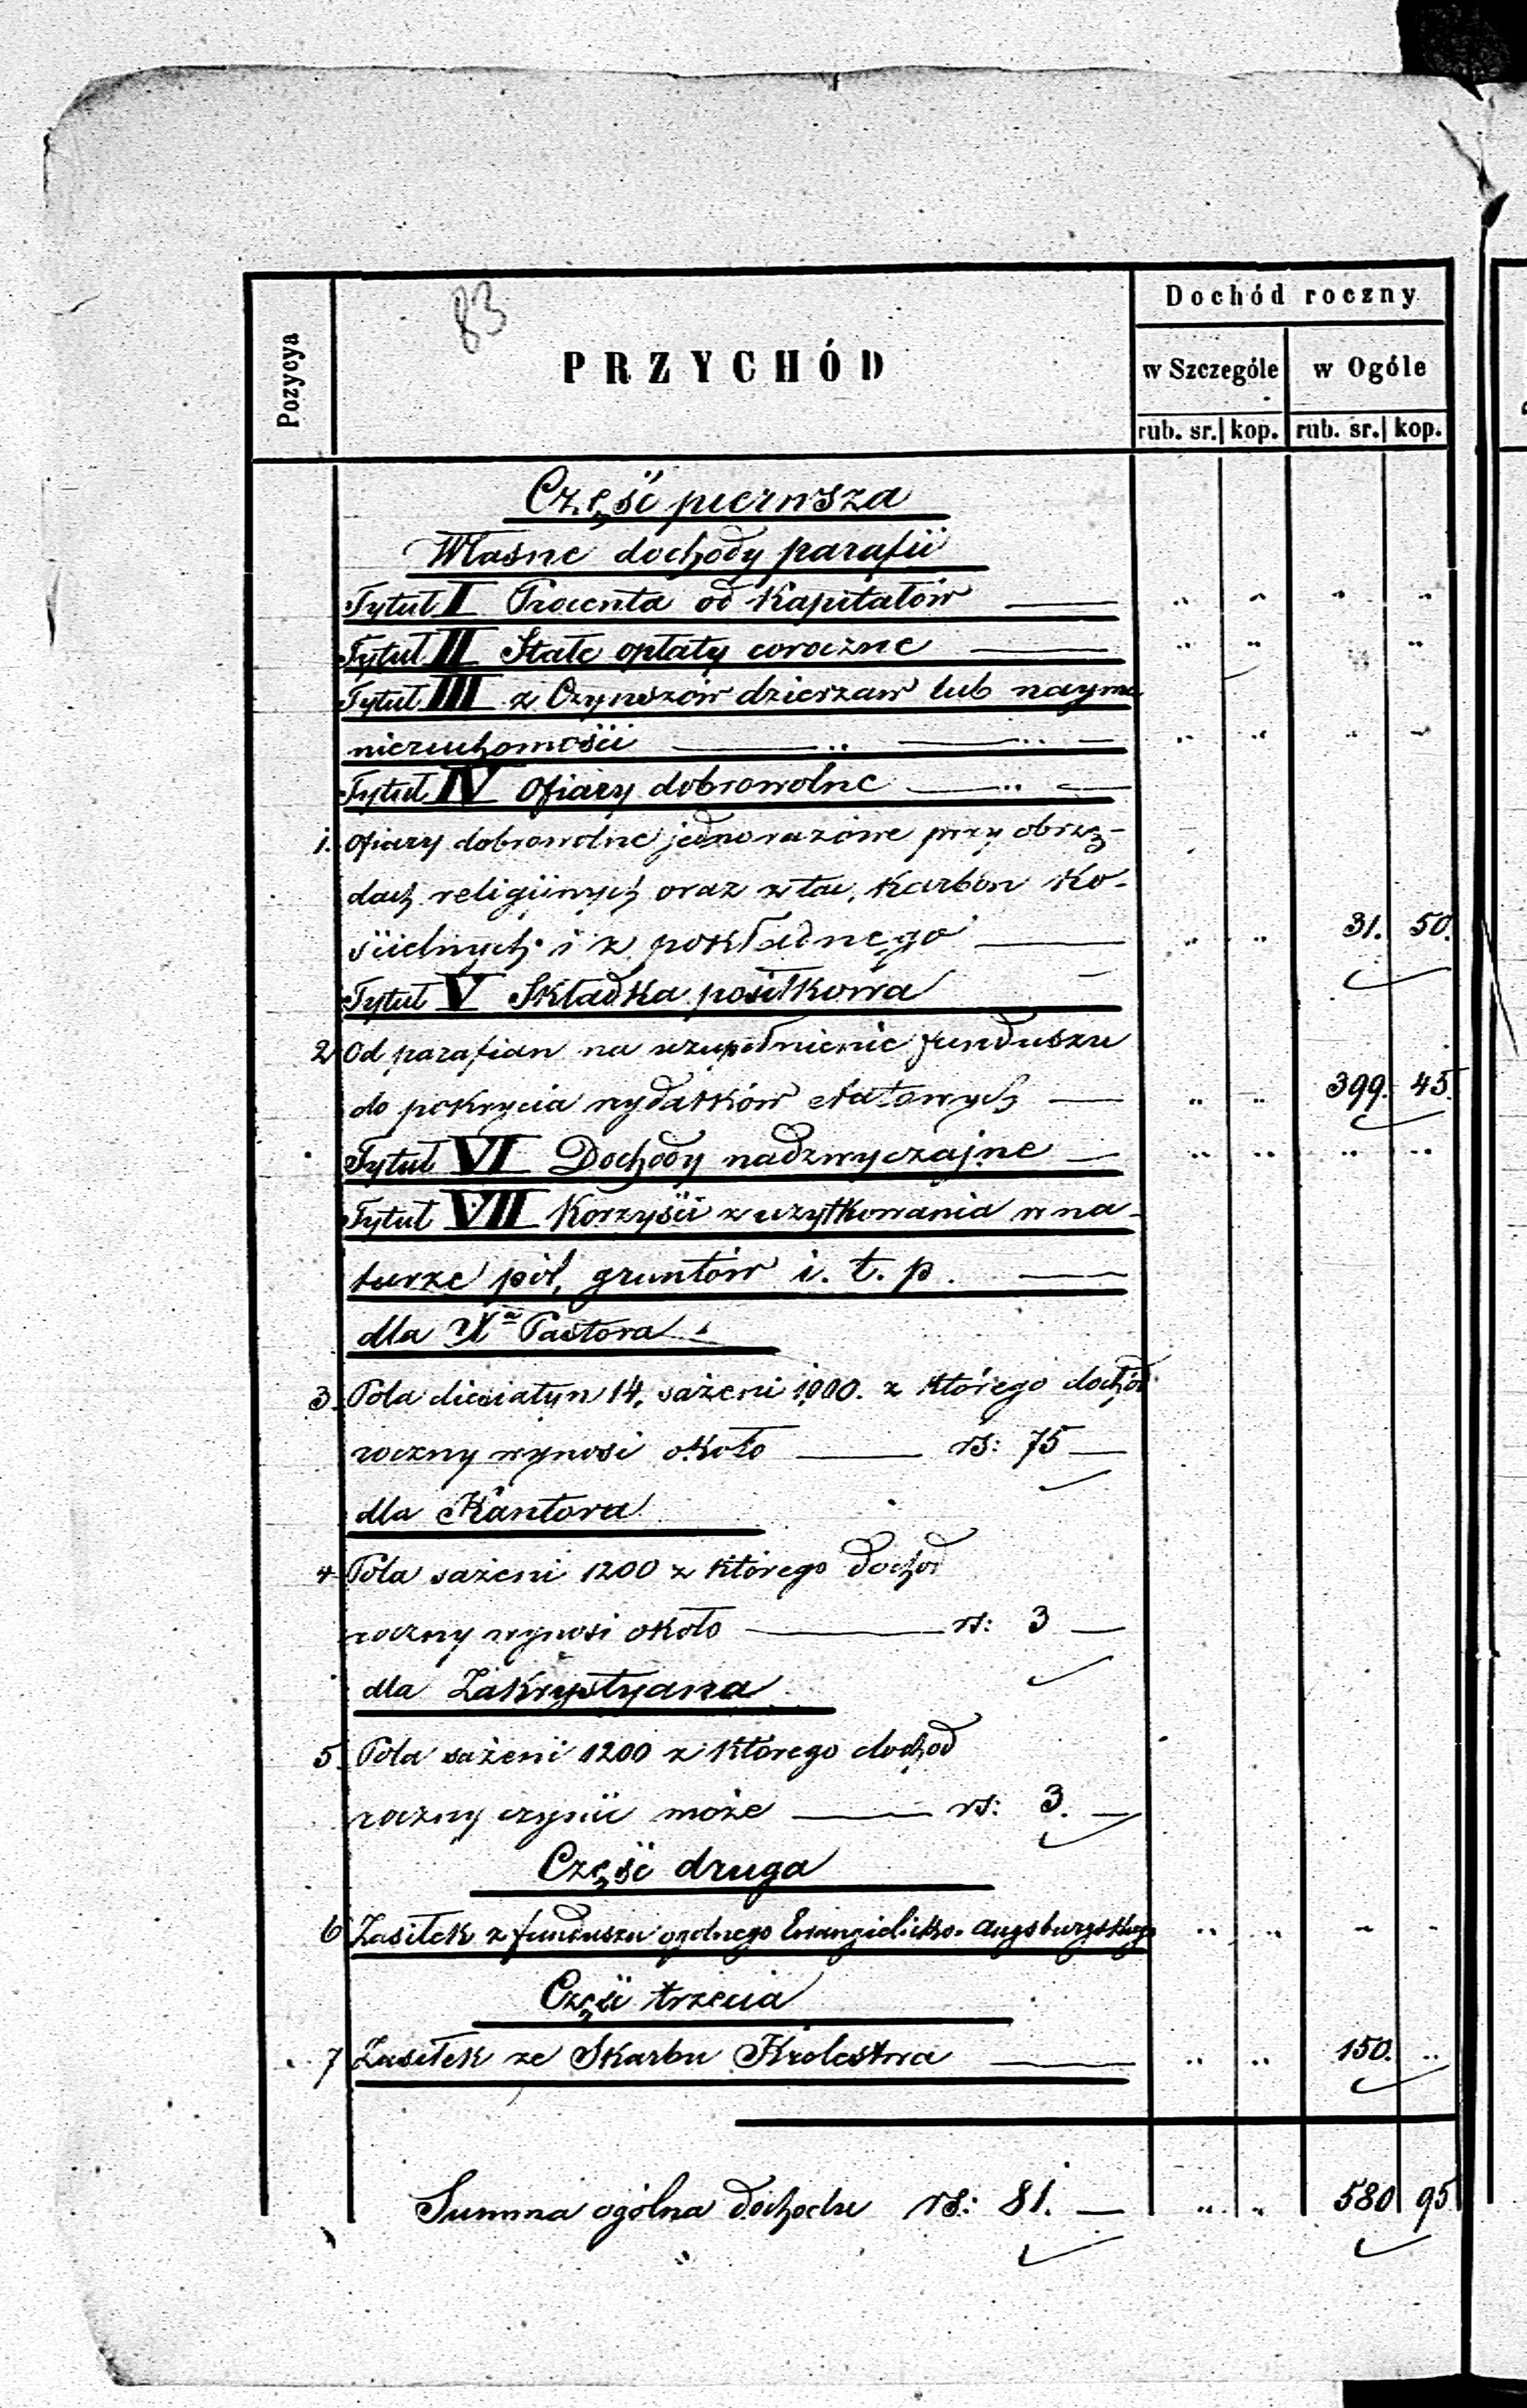 83
Pozycya
PRZYCHÓD
Dochód roczny
w Szczególe
w Ogóle
rub. sr. kop. rub. sr. kop.
Część pierwsza
Własne dochody parafii
Tytuł I Procenta od Kapitałów
Tytuł II Stałe opłaty coroczne
Tytuł III z Czynszów dzierżaw lub nayma
nieruchomości
Tytuł IV Ofiary dobrowolne
1. Ofiary dobrowolne jednorazowe przy obrzę-
dach religijnych oraz z tac, Karbon Ko-
ścielnych i z pokładnego 31. 50.
Tytuł V Składka posiłkowa
2 Od parafian na uzupełnienie funduszu
do pokrycia wydatków etatowych 399. 45.
Tytuł VI Dochody nadzwyczajne
Tytuł VII Korzyści z użytkowania w na-
turze pól, gruntów i. t. p.
dla Xa Pastora
3. Pola diesiatyn 14, sażeni 1000. z którego dochód
roczny wynosi około rs: 75
dla Kantora
4 Pola sażeni 1200 z którego dochód
roczny wynosi około rs: 3
dla Zakrystyana
5. Pola sażeni 1200 z którego dochód
roczny czynić może rs: 3.
Część druga
6 Zasiłek z funduszu ogólnego Ewangielicko-Augsburgskiego
Część trzecia
7 Zasiłek ze Skarbu Królestwa 150.
Summa ogólna dochodu rs: 81. 580 95.